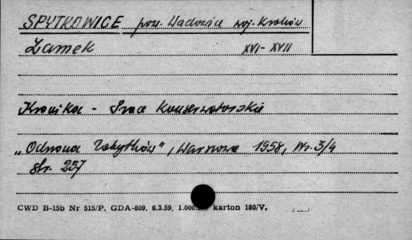 SPYTKOWICE pow. Wadowice woj. Kraków
Zamek XVI-XVII
Kronika - Prace Konserwatorskie
„Ochrona Zabytków", Warszawa 1958, Nr. 3/4
str. 257
CWD B-15b Nr 515/P. GDA-809. 6.3.59. 1.000. karton 180/V.